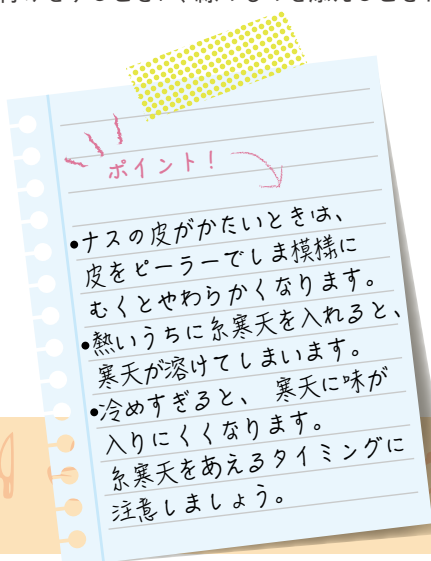 ポイント!
•ナスの皮がかたいときは、
皮をピーラーでしま模様に
むくとやわらかくなります。
•熱いうちに糸寒天を入れると、
寒天が溶けてしまいます。
•冷めすぎると、 寒天に味が
入りにくくなります。
糸寒天をあえるタイミングに
注意しましょう。